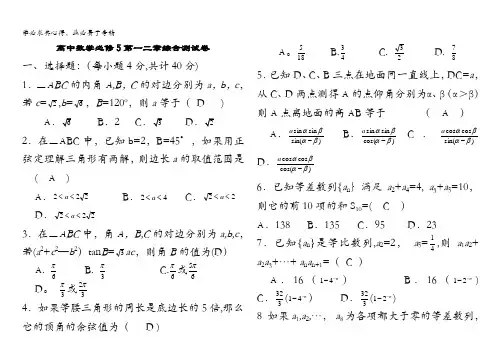 学必求其心得，业必贵于专精
高中数学必修5第一二章综合测试卷
一、选择题：（每小题4分,共计40分）
1．△ABC的内角A,B，C的对边分别为a，b，c，
若c=√2,b=√6，B=120°，则a等于（ D ）
A．√6 B．2 C．√3 D．√2
2．在△ABC中，已知b=2，B=45°，如果用正
弦定理解三角形有两解，则边长a的取值范围是
（ A ）
A．2<a<2√2 B．2<a<4 C．√2<a<2
D．√2<a<2√2
3．在△ABC中，角A，B,C的对边分别为a,b,c，
若(a²+c²—b²）tanB=√3ac，则角B的值为(D）
A．π/6 B．π/3 C.π/6或5π/6
D。π/3或2π/3
4．如果等腰三角形的周长是底边长的5倍,那么
它的顶角的余弦值为（ D）
A。5/18 B.3/4 C．√3/2 D．7/8
5．已知D、C、B三点在地面同一直线上，DC=a，
从C、D两点测得A的点仰角分别为α、β（α＞β）
则A点离地面的高AB等于 （ A ）
A．a sinα sinβ/sin(α−β) B．a sinα sinβ/cos(α−β) C．a cosα cosβ/sin(α−β)
D．a cosα cosβ/cos(α−β)
6．已知等差数列{aₙ} 满足a₂+a₄=4, a₃+a₅=10，
则它的前10项的和S₁₀=( C ）
A．138 B．135 C．95 D．23
7．已知{aₙ}是等比数列,a₂=2， a₅=1/4，则a₁a₂+
a₂a₃+…+ aₙaₙ₊₁=（ C ）
A．16（1−4⁻ⁿ） B．16（1−2⁻ⁿ）
C．32/3(1−4⁻ⁿ） D．32/3(1−2⁻ⁿ）
8 如果a₁,a₂,…， a₈为各项都大于零的等差数列，